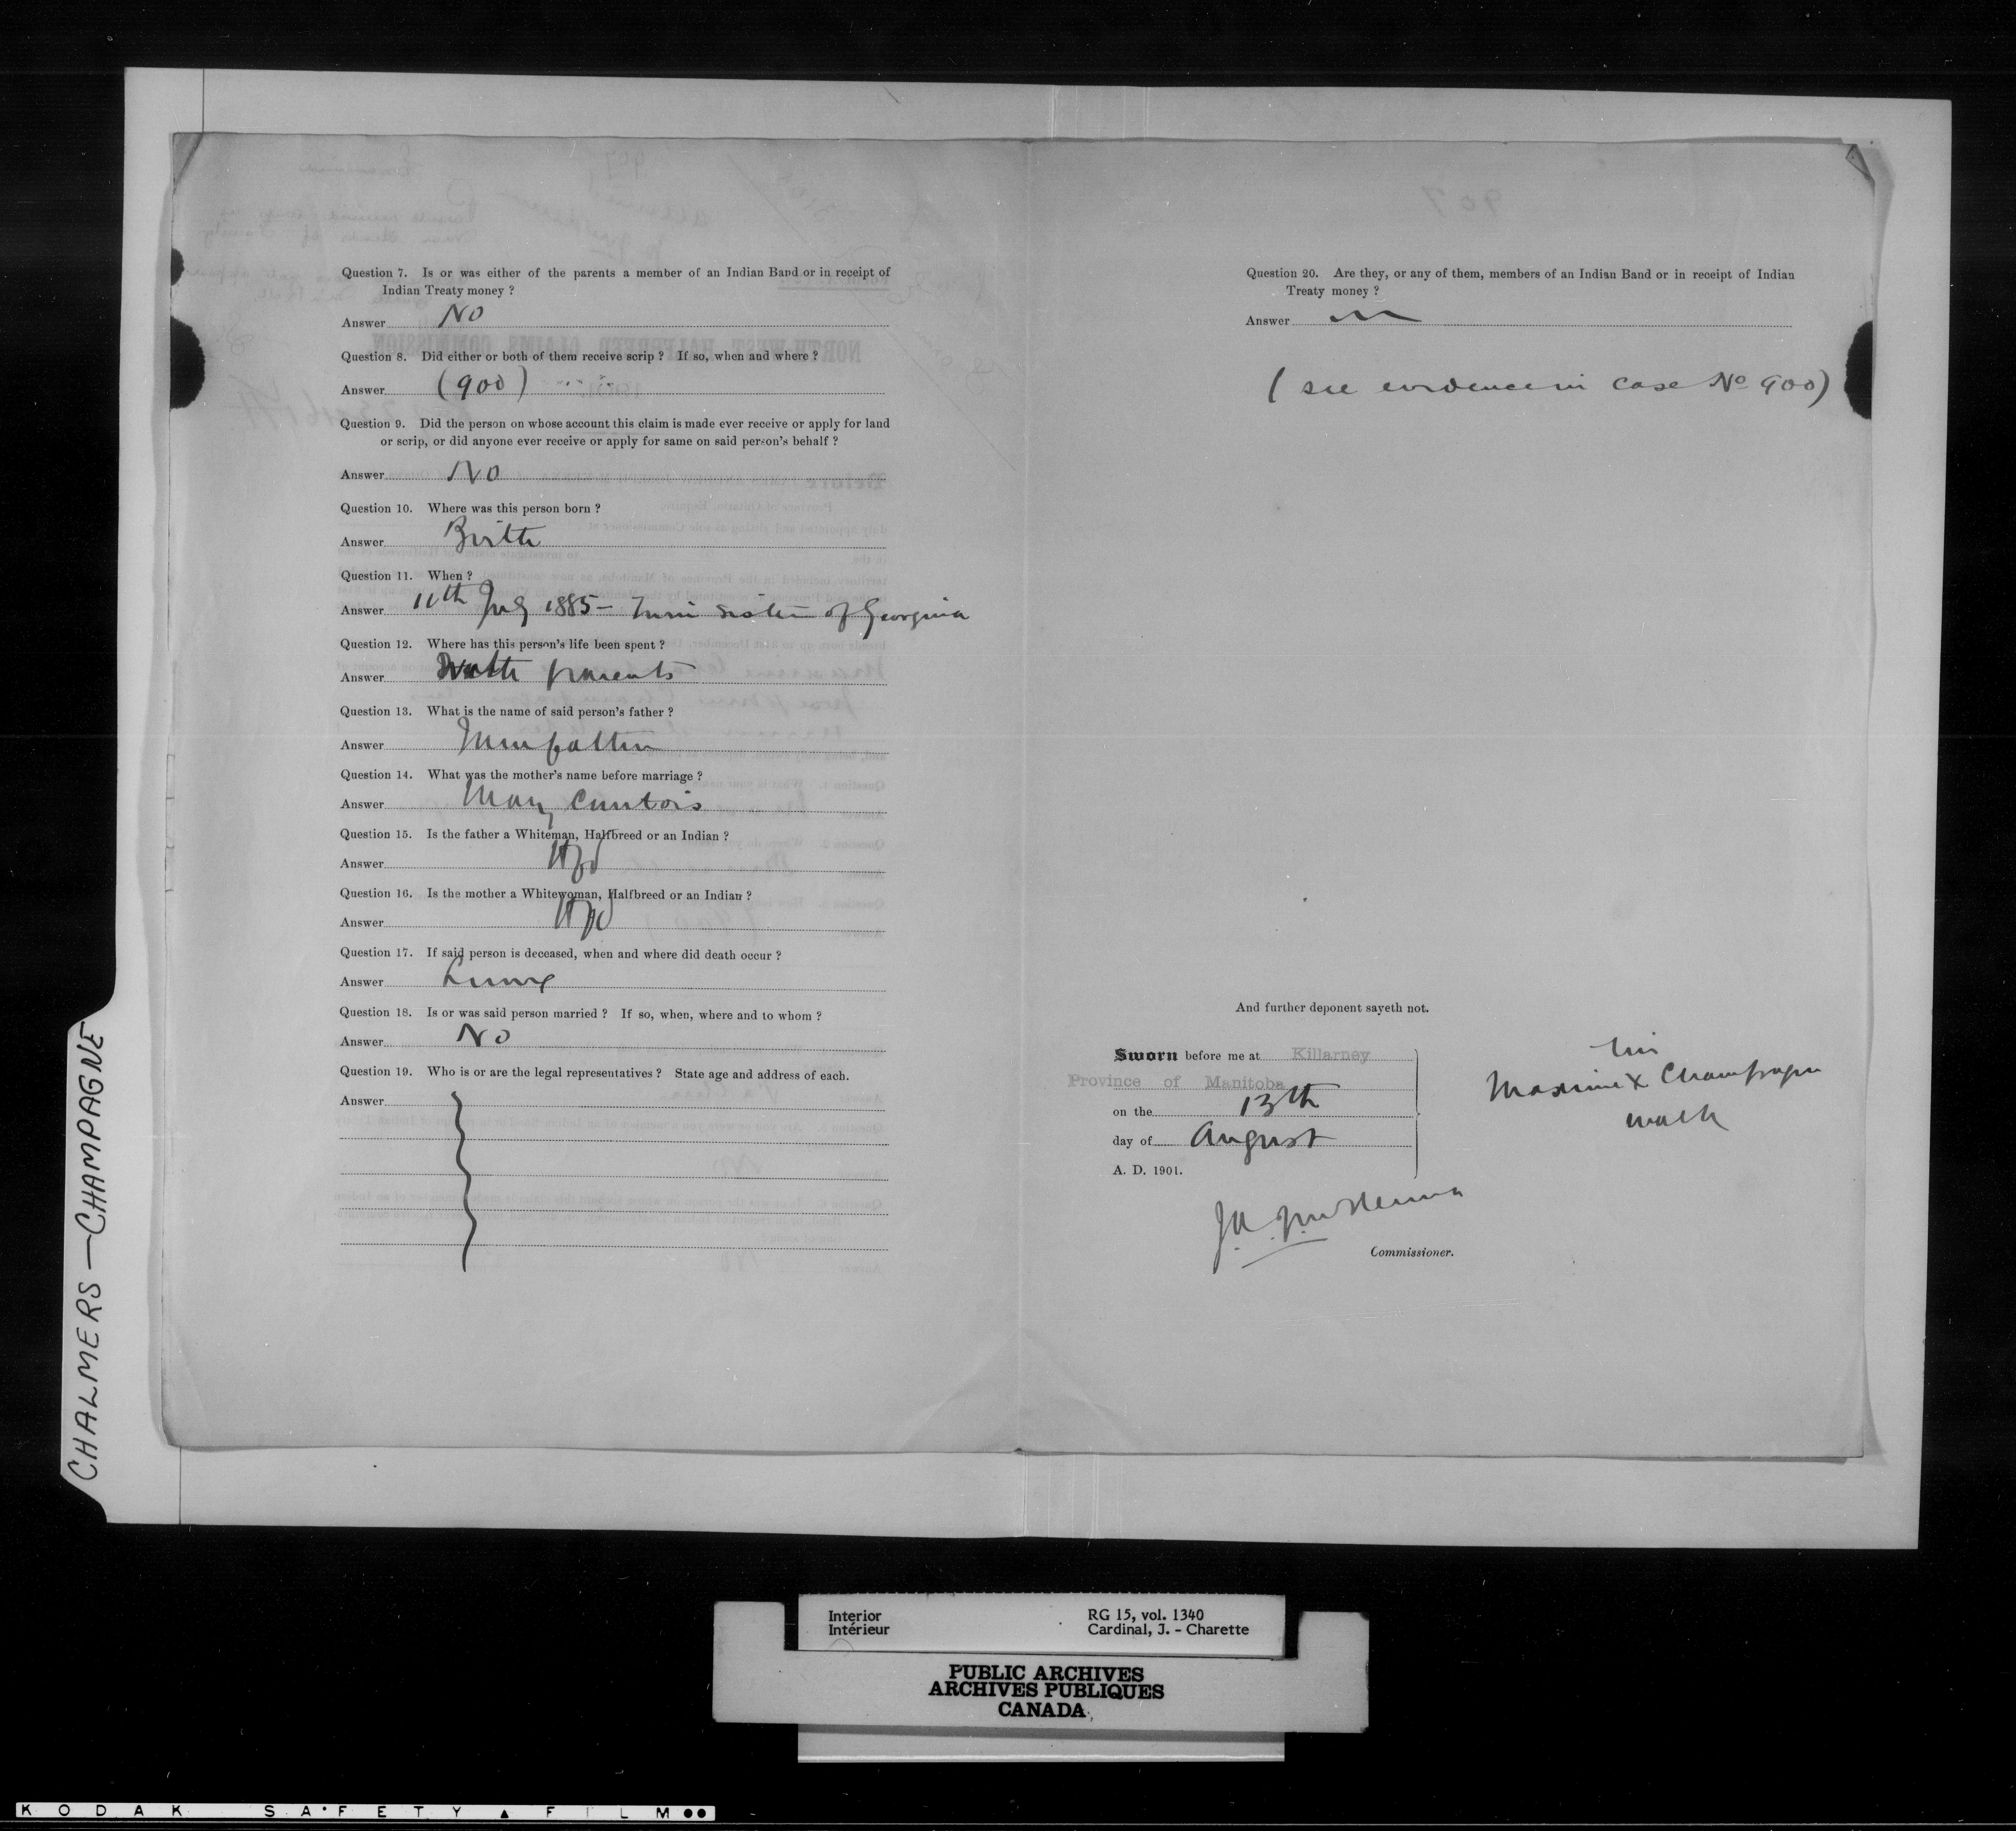 Question 7. Is or was either of the parents a member of an Indian Band or in receipt of
Indian Treaty money ?
Answer No
Question 8. Did either or both of them receive scrip ? If so, when and where ?
Answer (900)
Question 9. Did the person on whose account this claim is made ever receive or apply for land
or scrip, or did anyone ever receive or apply for same on said person's behalf ?
Answer No
Question 10. Where was this person born ?
Answer
Question 11. When ?
Answer 11th July 1885 – Twin sister of Georgina
Question 12. Where has this person's life been spent ?
Answer With parents
Question 13. What is the name of said person's father ?
Answer
Question 14. What was the mother's name before marriage ?
Answer Mary
Question 15. Is the father a Whiteman, Halfbreed or an Indian ?
Answer Hfd
Question 16. Is the mother a Whitewoman, Halfbreed or an Indian ?
Answer Hfd
Question 17. If said person is deceased, when and where did death occur ?
Answer Living
Question 18. Is or was said person married ? If so, when, where and to whom ?
Answer No
Question 19. Who is or are the legal representatives ? State age and address of each.
Answer
Question 20. Are they, or any of them, members of an Indian Band or in receipt of Indian
Treaty money ?
Answer
( see evidence in case No 900)
And further deponent sayeth not.
Sworn before me at Killarney
Province of Manitoba
on the 13th
day of August
A. D. 1901.
his
Maxime X Champagne
mark
J.A. McKenna
Commissioner.
CHALMERS — CHAMPAGNE
Interior
Intérieur
RG 15, vol. 1340
Cardinal, J. - Charette
PUBLIC ARCHIVES
ARCHIVES PUBLIQUES
CANADA
KODAK SAFETY FILM